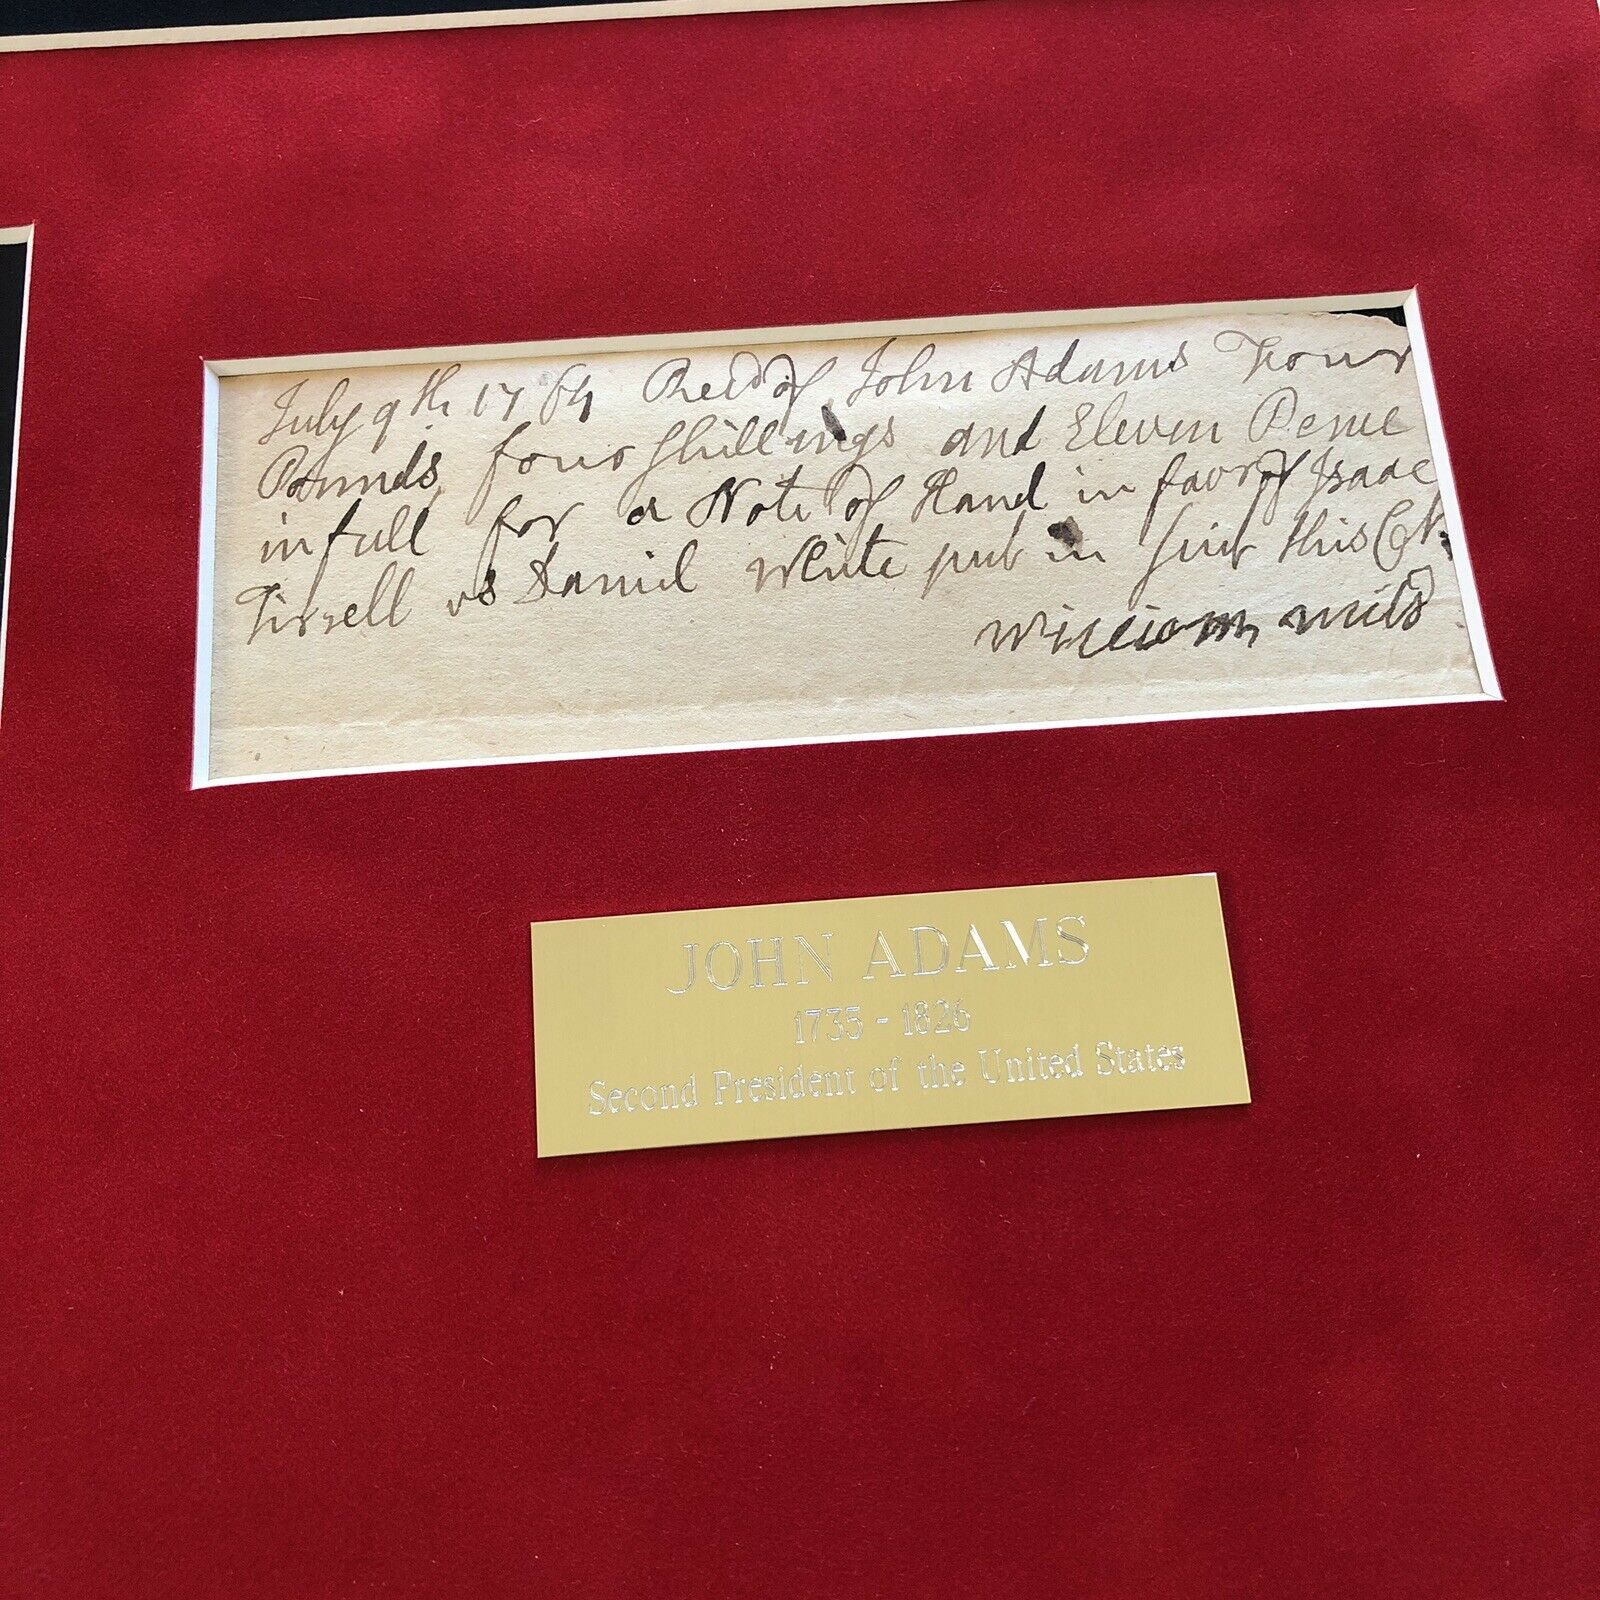 July 9th 1764 Recd of John Adams Four
Pounds four Shillings and Eleven Pence
in full for a Note of Hand in favor of Isaac
Tirrell vs Daniel White put in Suit this Ct.
William
JOHN ADAMS
1735 - 1826
Second President of the United States